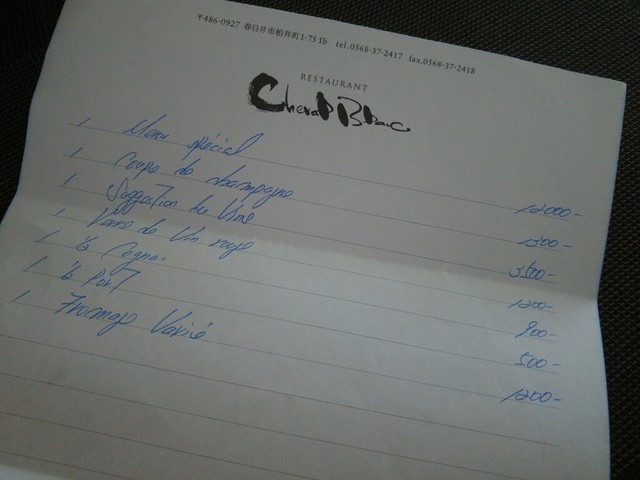 〒486-0927 春日井市柏井町1-75 1b tel.0568-37-2417 fax.0568-37-2418
RESTAURANT
Cheval Blanc
1 Menu spécial 12000-
1 Coupe de champagne 1300-
1 Suggestion de Vins 3600-
1 Verre de Vin rouge 1200-
1 1/2 Cogna. 900-
1 1/2 Port 500-
1 Fromage Varié 1200-